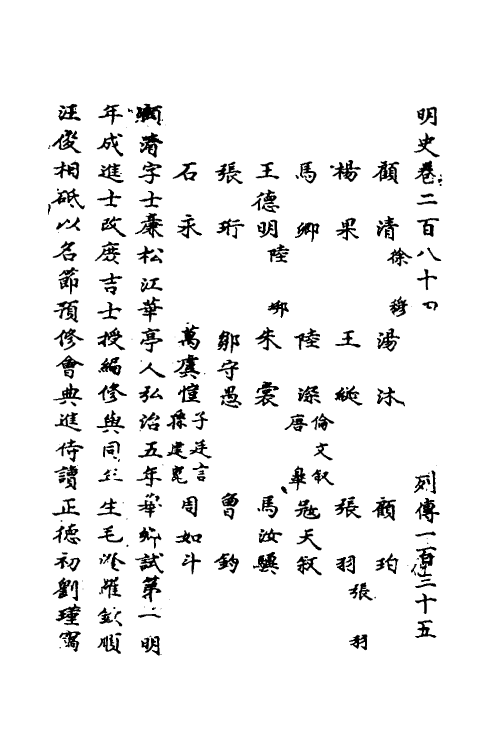 明史卷二百八十四 列傳一百三十五
顧清 徐穆 湯沐 顧珀
楊果 王縝 張羽 張羽
馬卿 陸深 唐臯 倫文叙 寇天叙
王德明 陸卿 朱裳 馬汝驥
張珩 鄒守愚 曾鈞
石永 萬虞愷 子廷言 孫建崑 周如斗
顧清字士廉松江華亭人弘治五年舉鄉試第一明
年成進士改庶吉士授編修與同年生毛澄羅欽順
汪俊相砥以名節預修會典進侍讀正德初劉瑾竊